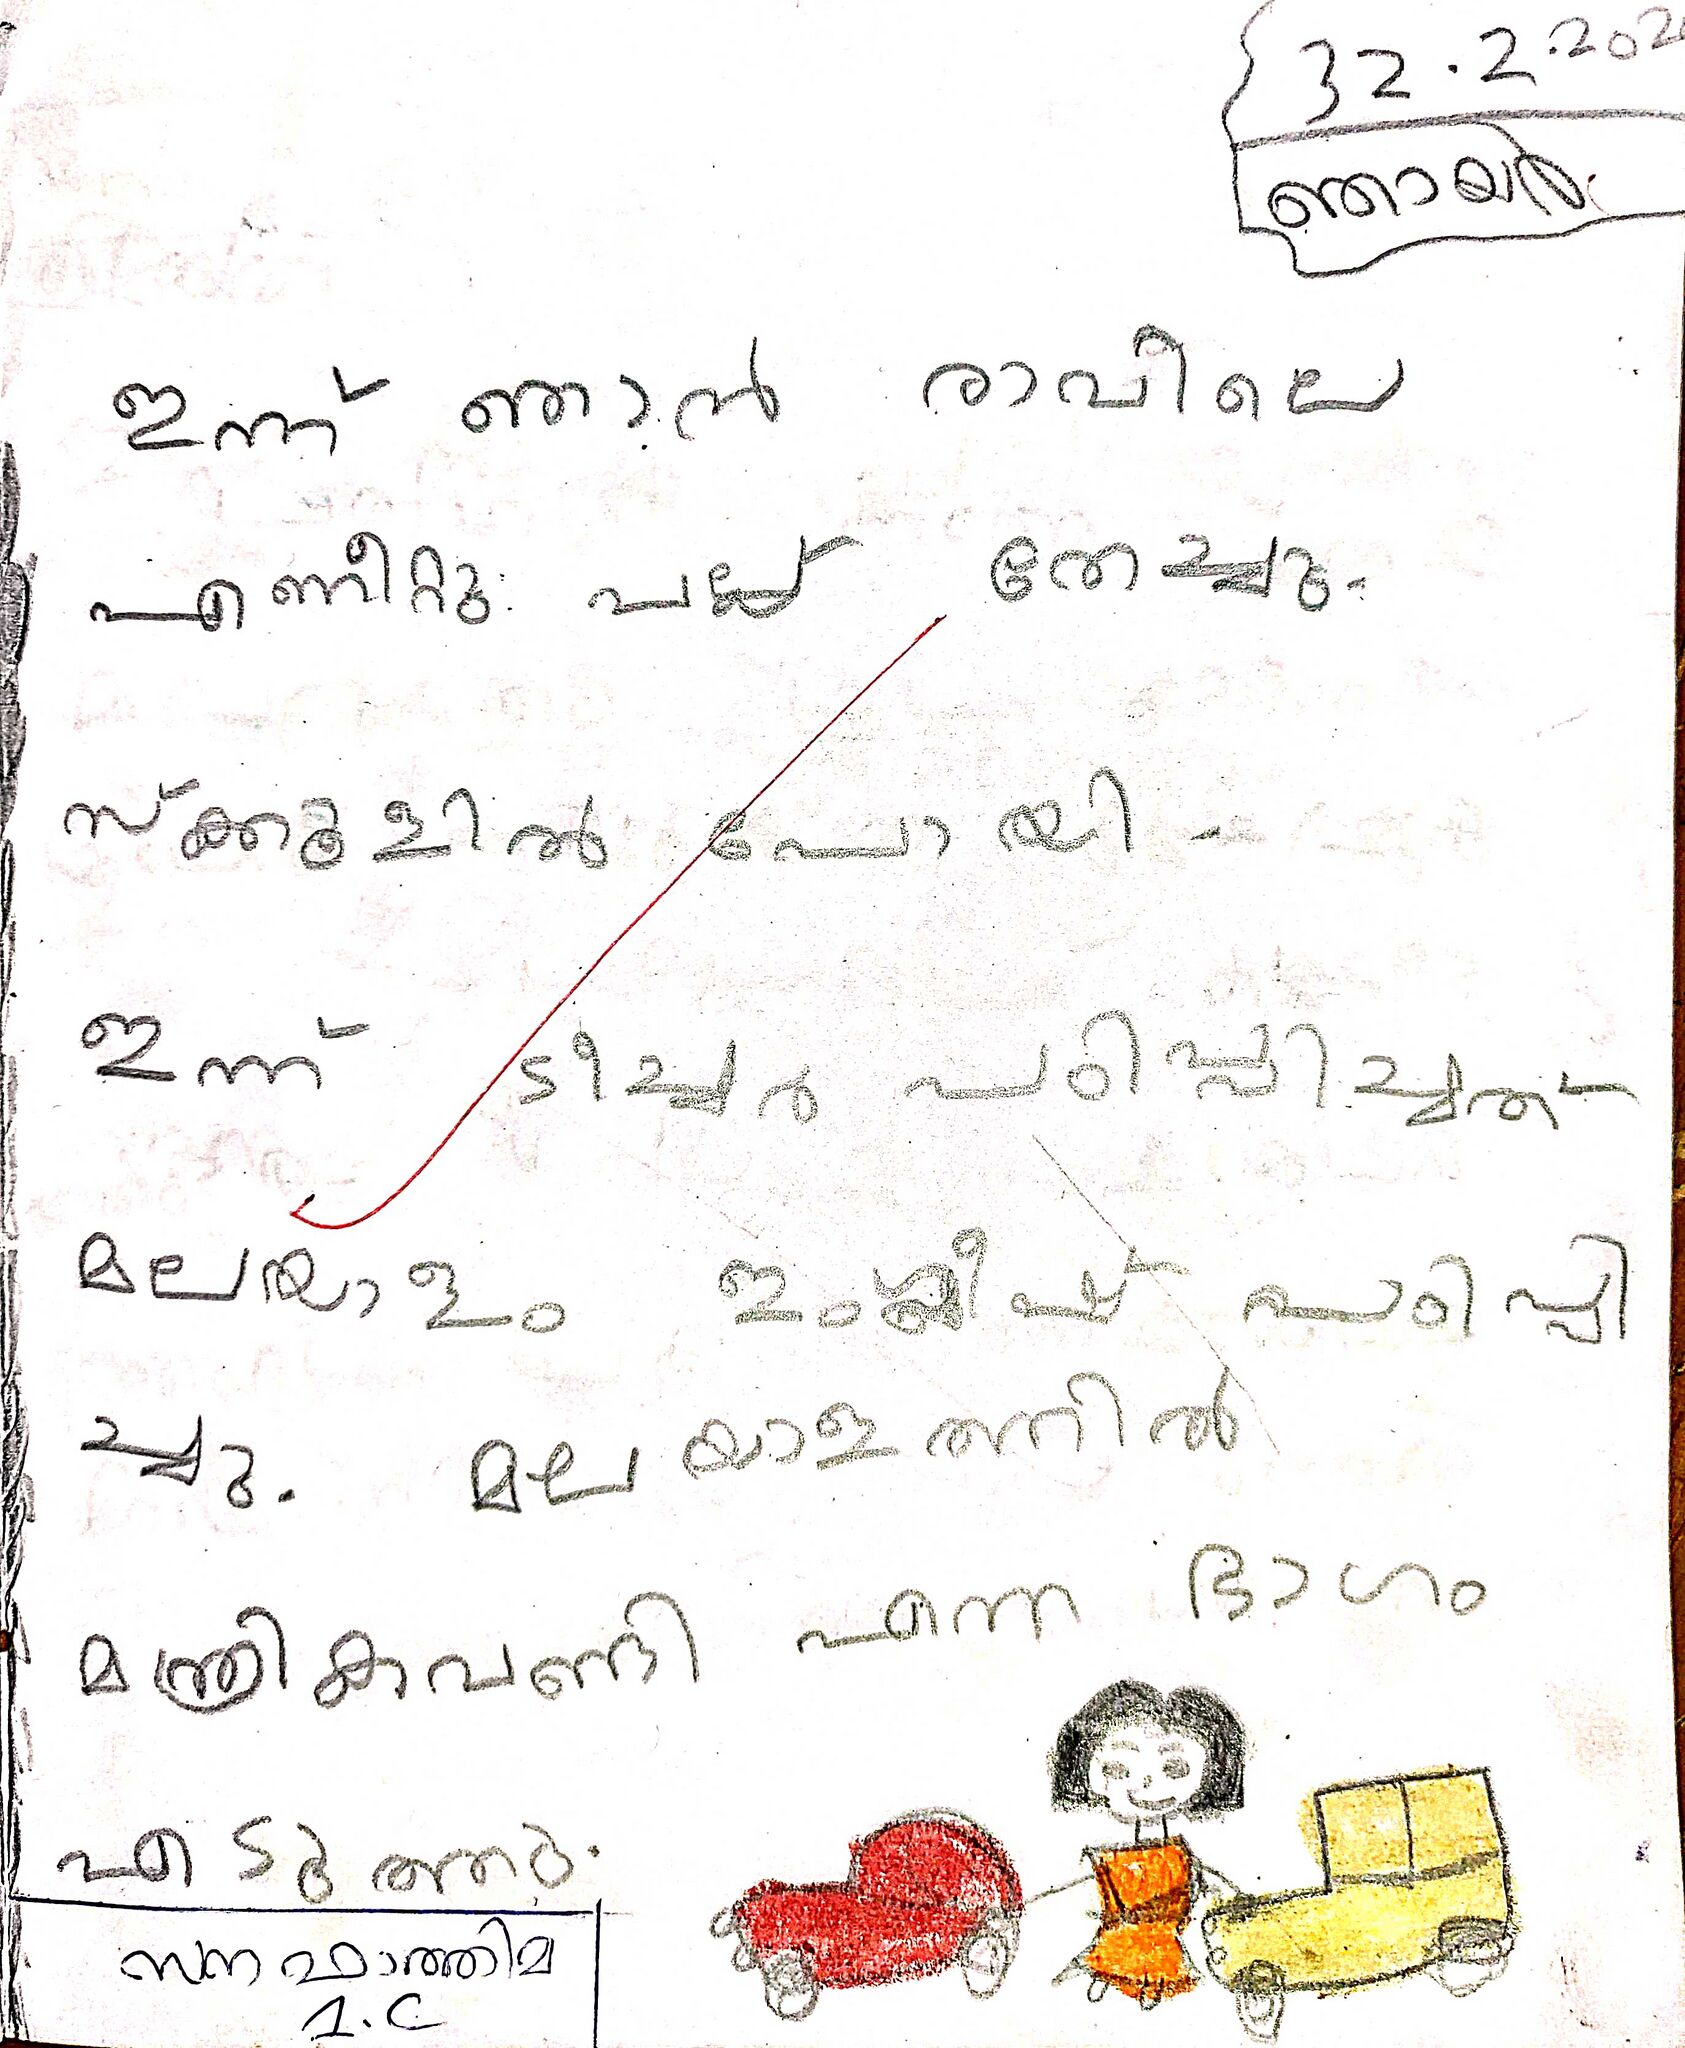 32.2.202
ഞായർ
ഇന്ന് ഞാൻ രാവിലെ
എണീറ്റു പല്ല് തേച്ചു.
സ്ക്കൂളിൽ പോയി.
ഇന്ന് ടീച്ചർ പഠിപ്പിച്ചത്
മലയാളം ഇംഗ്ലീഷ് പഠിപ്പി
ച്ചു. മലയാളത്തിൽ
മന്ത്രികവണ്ടി എന്ന ഭാഗം
എടുത്തു.
സന ഫാത്തിമ
1.C